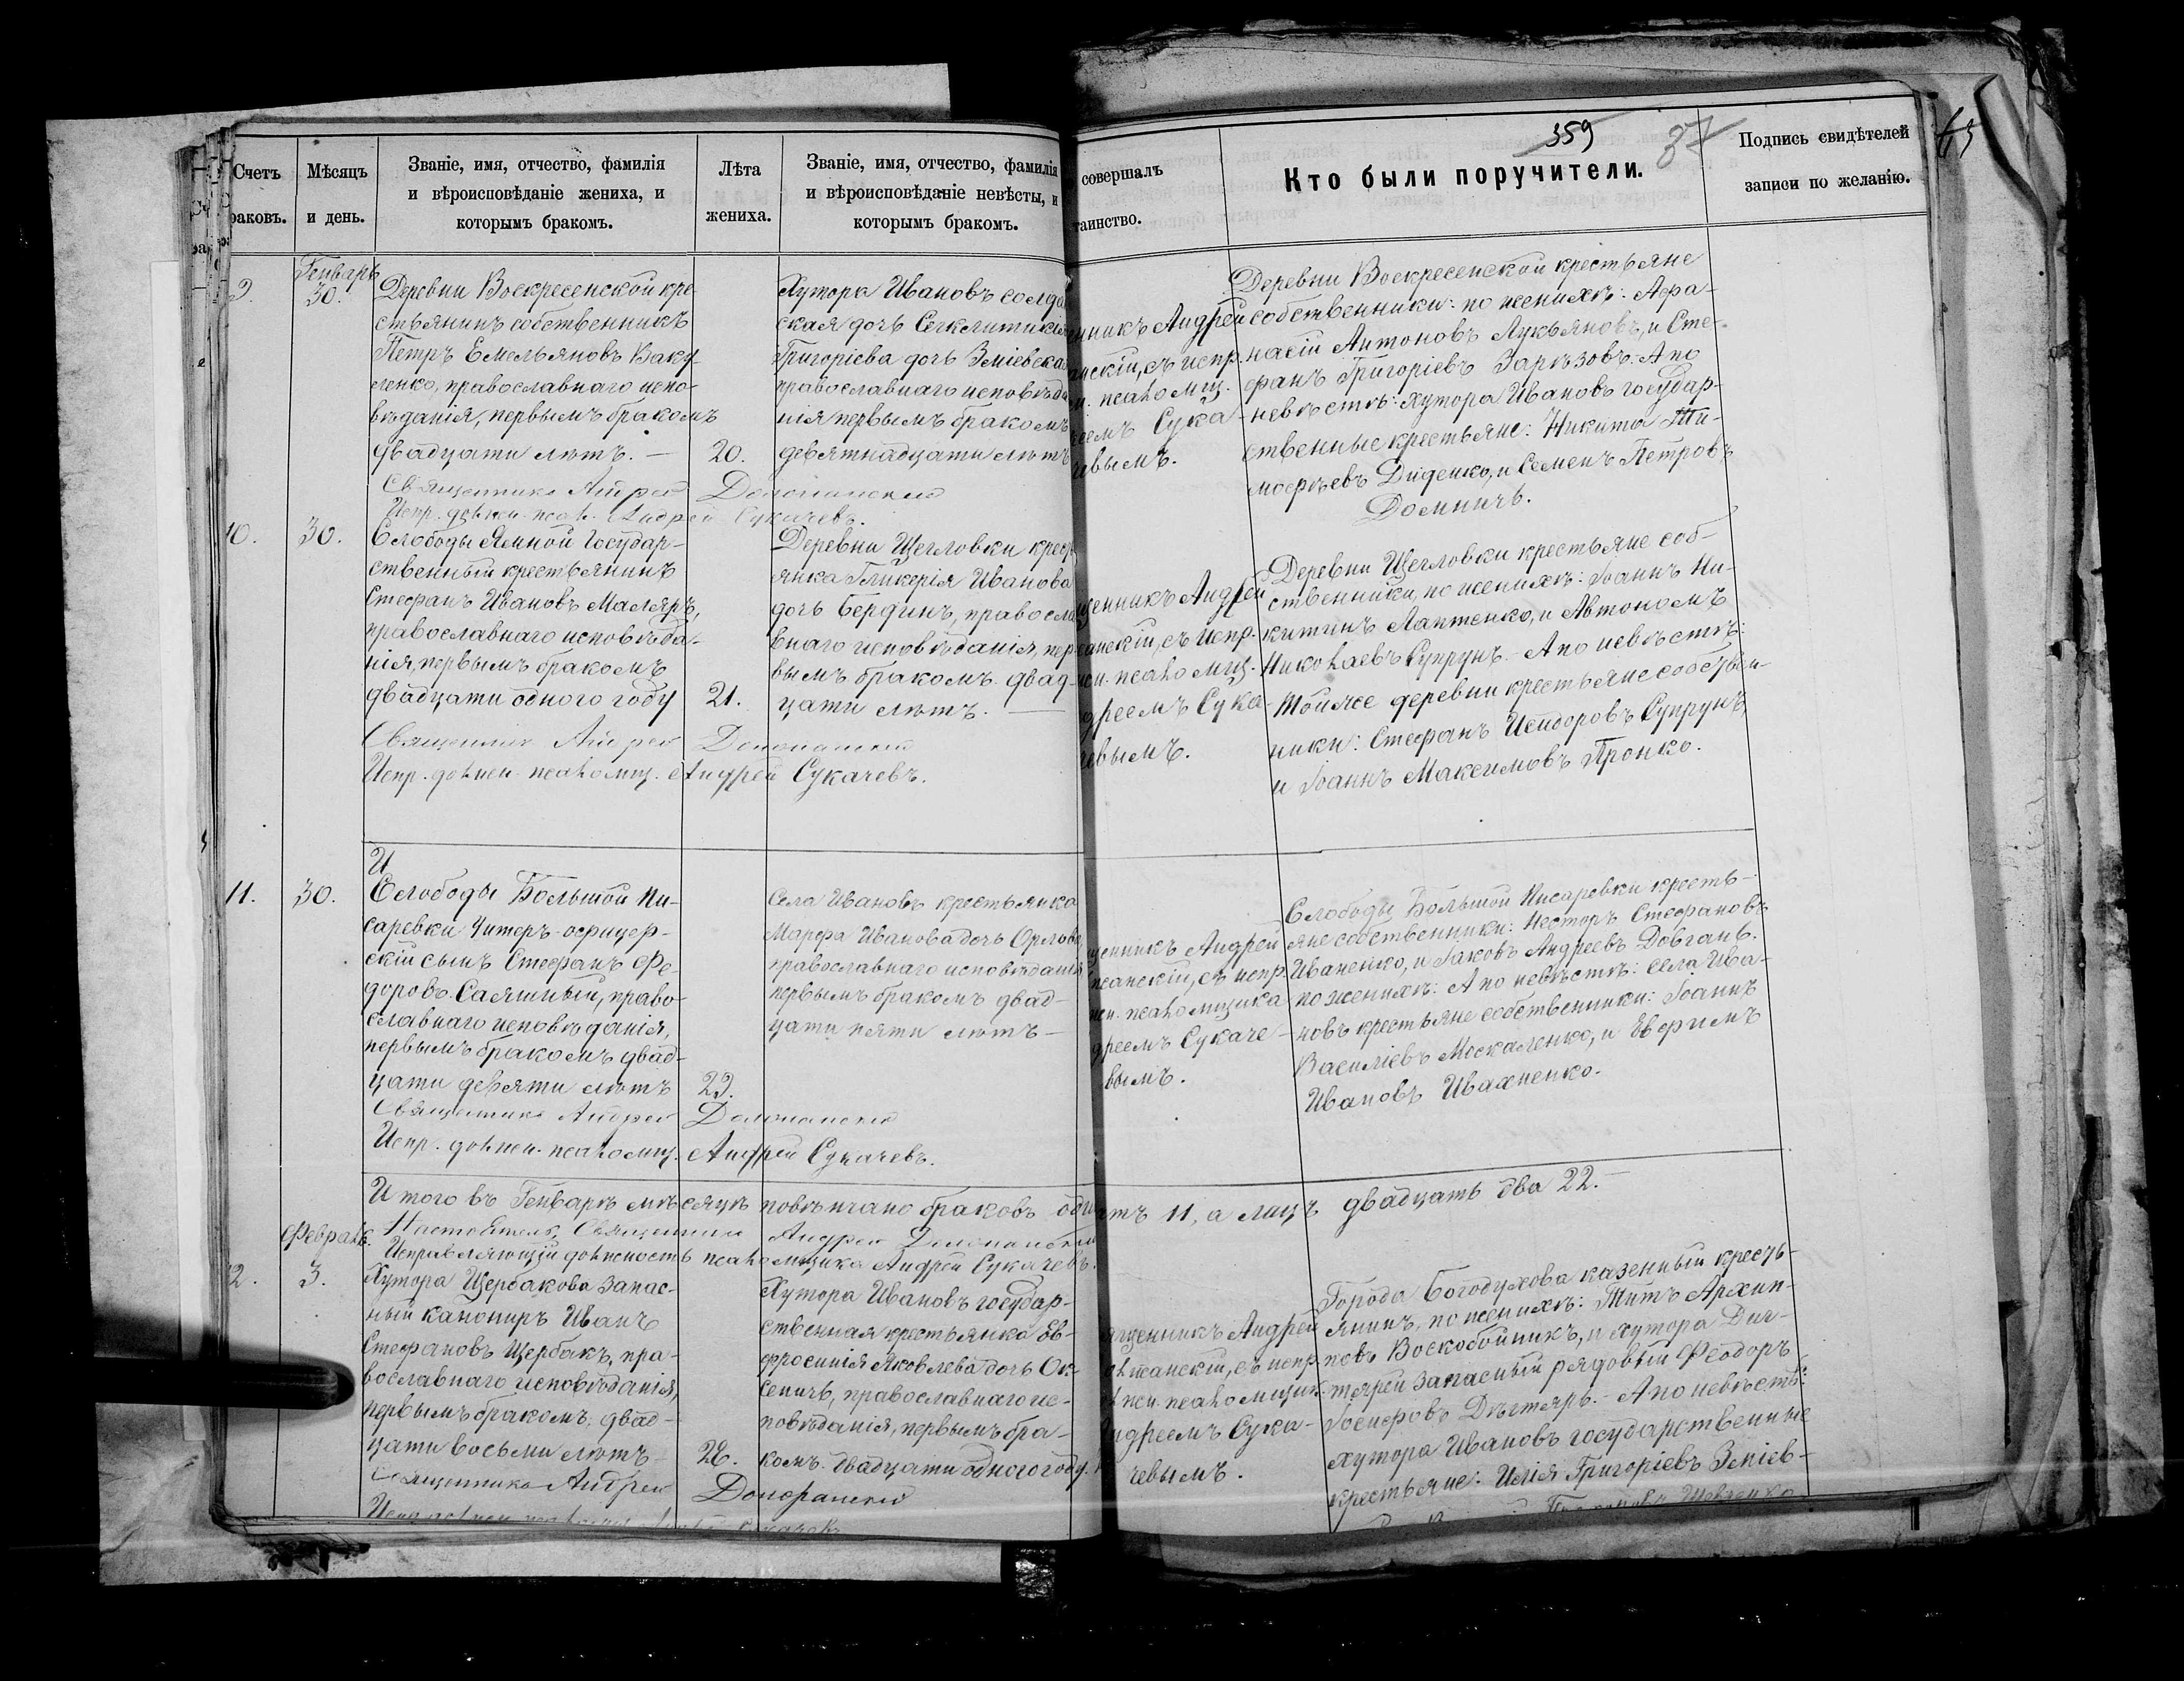 359
87
Счетъ
раковъ.
Мѣсяцъ
и день.
Званіе, имя, отчество, фамилія
и вѣроисповѣданіе жениха, и
которымъ бракомъ.
Лѣта
жениха.
Званіе, имя, отчество, фамилія
и вѣроисповѣданіе невѣсты, и
которымъ бракомъ.
совершалъ
таинство.
Кто были поручители.
Подпись свидѣтелей
записи по желанію.
9.
Генварь
30.
Деревни Воскресенской кре-
стьянинъ собственникъ
Петръ Емельяновъ Баку-
ленко, православнаго испо-
вѣданія, первымъ бракомъ
двадцати лѣтъ. —
20.
Хутора Ивановъ солда
ская дочь
Григоріева дочь Зміевска
православнаго исповѣда
нія первымъ бракомъ
девятнадцати лѣтъ
нникъ Андрей
нскій, съ испр.
н. псаломщ.
еемъ Сука-
чевымъ.
Деревни Воскресенской крестьяне
собственники: по женихѣ: Афа-
насій Антоновъ Лукьяновъ, и Сте-
фанъ Григоріевъ Зарѣзовъ. А по
невѣстѣ: хутора Ивановъ государ-
ственные крестьяне: Никита Ти-
моѳеевъ Диденко, и Семенъ Петровъ
Доминичъ.
Священникъ Андрей
Испр. должн. псал. Андрей Сукачевъ.
10.
30.
Слободы Ямной Государ-
ственный крестьянинъ
Стефанъ Ивановъ Маляръ,
православнаго исповѣда-
нія, первымъ бракомъ
двадцати одного году
21.
Деревни Щегловки крест
янка Гликерія Иванова
дочь Бердинъ, правосла
внаго исповѣданія, пер
вымъ бракомъ двад-
цати лѣтъ. —
щенникъ Андрей
нскій, съ испр.
н. псаломщ.
дреемъ Сука-
чевымъ.
Деревни Щегловки крестьяне соб-
ственники, по женихѣ: Іоаннъ Ни-
китинъ Лаптенко, и Автономъ
Николаевъ Супрунъ. — А по невѣстѣ:
той же деревни крестьяне собствен-
ники: Стефанъ Исидоровъ Супрунъ,
и Іоаннъ Максимовъ Пронко.
Священникъ Андрей
Испр. должн. псаломщ. Андрей Сукачевъ.
И
11.
30.
Слободы Большой Пи-
саревки Унтеръ-офицер-
скій сынъ Стефанъ Фе-
доровъ Саяшный, право-
славнаго исповѣданія,
первымъ бракомъ двад-
цати девяти лѣтъ
29.
Села Ивановъ крестьянка
Марфа Иванова дочь Орлова
православнаго исповѣданія
первымъ бракомъ двад-
цати пяти лѣтъ —
щенникъ Андрей
нскій, съ испр.
н. псаломщика
дреемъ Сукаче-
вымъ.
Слободы Большой Писаревки кресть-
яне собственники: Несторъ Стефановъ
Иваненко, и Іаковъ Андреевъ Довгань.
по женихѣ: А по невѣстѣ: села Ива-
новъ крестьяне собственники: Іоаннъ
Василіевъ Москаленко, и Евфимъ
Ивановъ Ивахненко.
Священникъ Андрей
Испр. должн. псаломщ. Андрей Сукачевъ.
Итого въ Генварѣ мѣсяцѣ повѣнчано браковъ один атъ 11, а лицъ двадцать два 22. —
Настоятель, Священникъ Андрей
Исправляющій должность псаломщика Андрей Сукачевъ.
Февраль.
12.
3.
Хутора Щербакова запас-
ный канониръ Иванъ
Стефановъ Щербакъ, пра-
вославнаго исповѣданія,
первымъ бракомъ, двад-
цати восьми лѣтъ
28.
Хутора Ивановъ государ-
ственная крестьянка Ев-
фросинія Яковлева дочь Ок-
сеничъ, православнаго ис-
повѣданія, первымъ бра-
комъ. двадцати одного году.
щенникъ Андрей
нскій, съ испр.
лжн. псаломщик.
Андреемъ Сука-
чевымъ.
Города Богодухова казенный кресть-
янинъ, по женихѣ: Титъ Архип-
повъ Воскобойникъ, и хутора Дег-
тярей запасный рядовый Феодоръ
Іосифовъ Дегтярь. — А по невѣстѣ:
хутора Ивановъ государственные
крестьяне: Илія Григоріевъ Зміев-
Шевченко
Священникъ Андрей